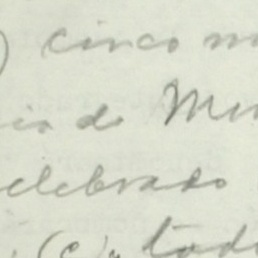 ) cinco m
io do Min
elebrado
(c), toda